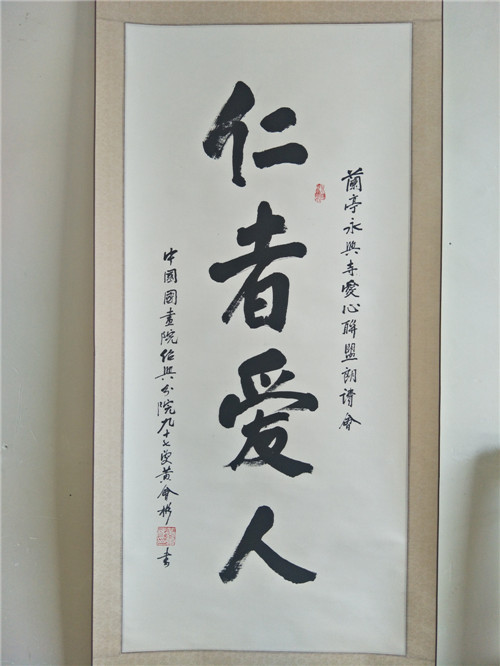 蘭亭永興寺愛心聯盟朗詩會
仁者爱人
中國國畫院绍興分院九十七叟黄會彬書